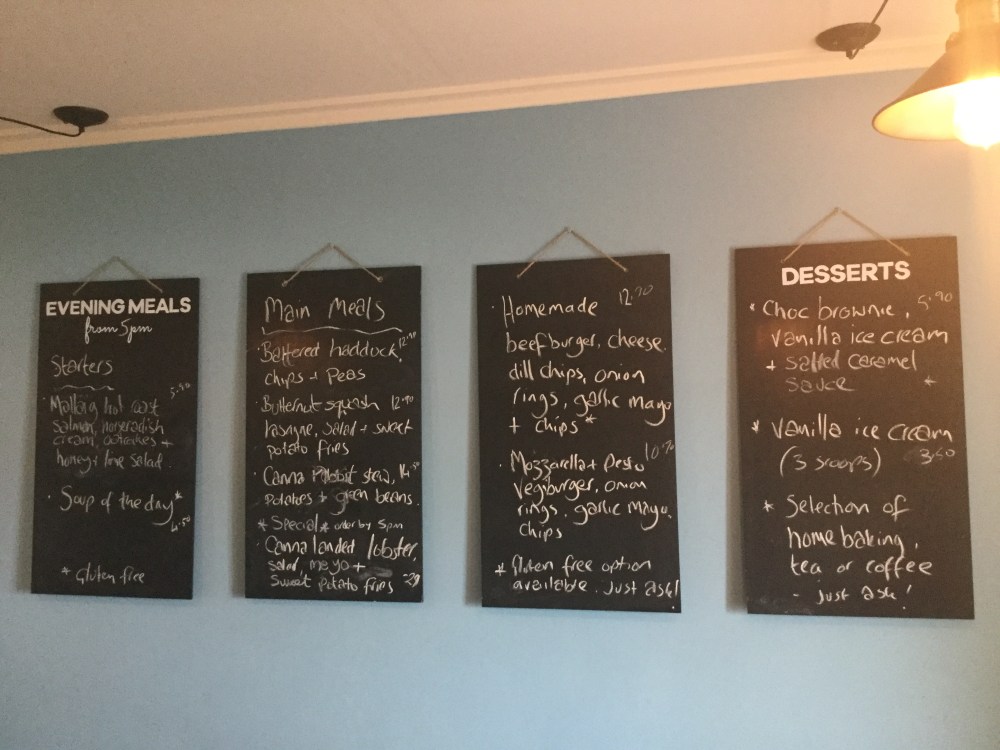 EVENING MEALS
from 5pm
Starters
5.90
Mallaig hot roast
salmon, horseradish
cream, oatcakes +
honey + lime salad.
Soup of the day *
4.50
* Gluten free
Main Meals
Battered haddock, 12.90
chips + Peas
Butternut squash 12.90
lasagne, salad + sweet
potato fries
Canna Rabbit stew, 14
potatoes + green beans.
* Special * order by 5pm
Canna landed lobster,
salad, mayo +
Sweet potato fries
Homemade 12.90
beefburger, cheese.
dill chips, onion
rings, garlic mayo
+ chips *
Mozzarella + Pesto 10.90
Vegiburger, onion
rings, garlic mayo,
chips
* Gluten free option
available. Just ask!
DESSERTS
* Choc brownie, 5.90
vanilla ice cream
+ salted caramel
sauce *
* Vanilla ice cream
(3 scoops) 3.50
* Selection of
home baking,
tea or coffee
- just ask!